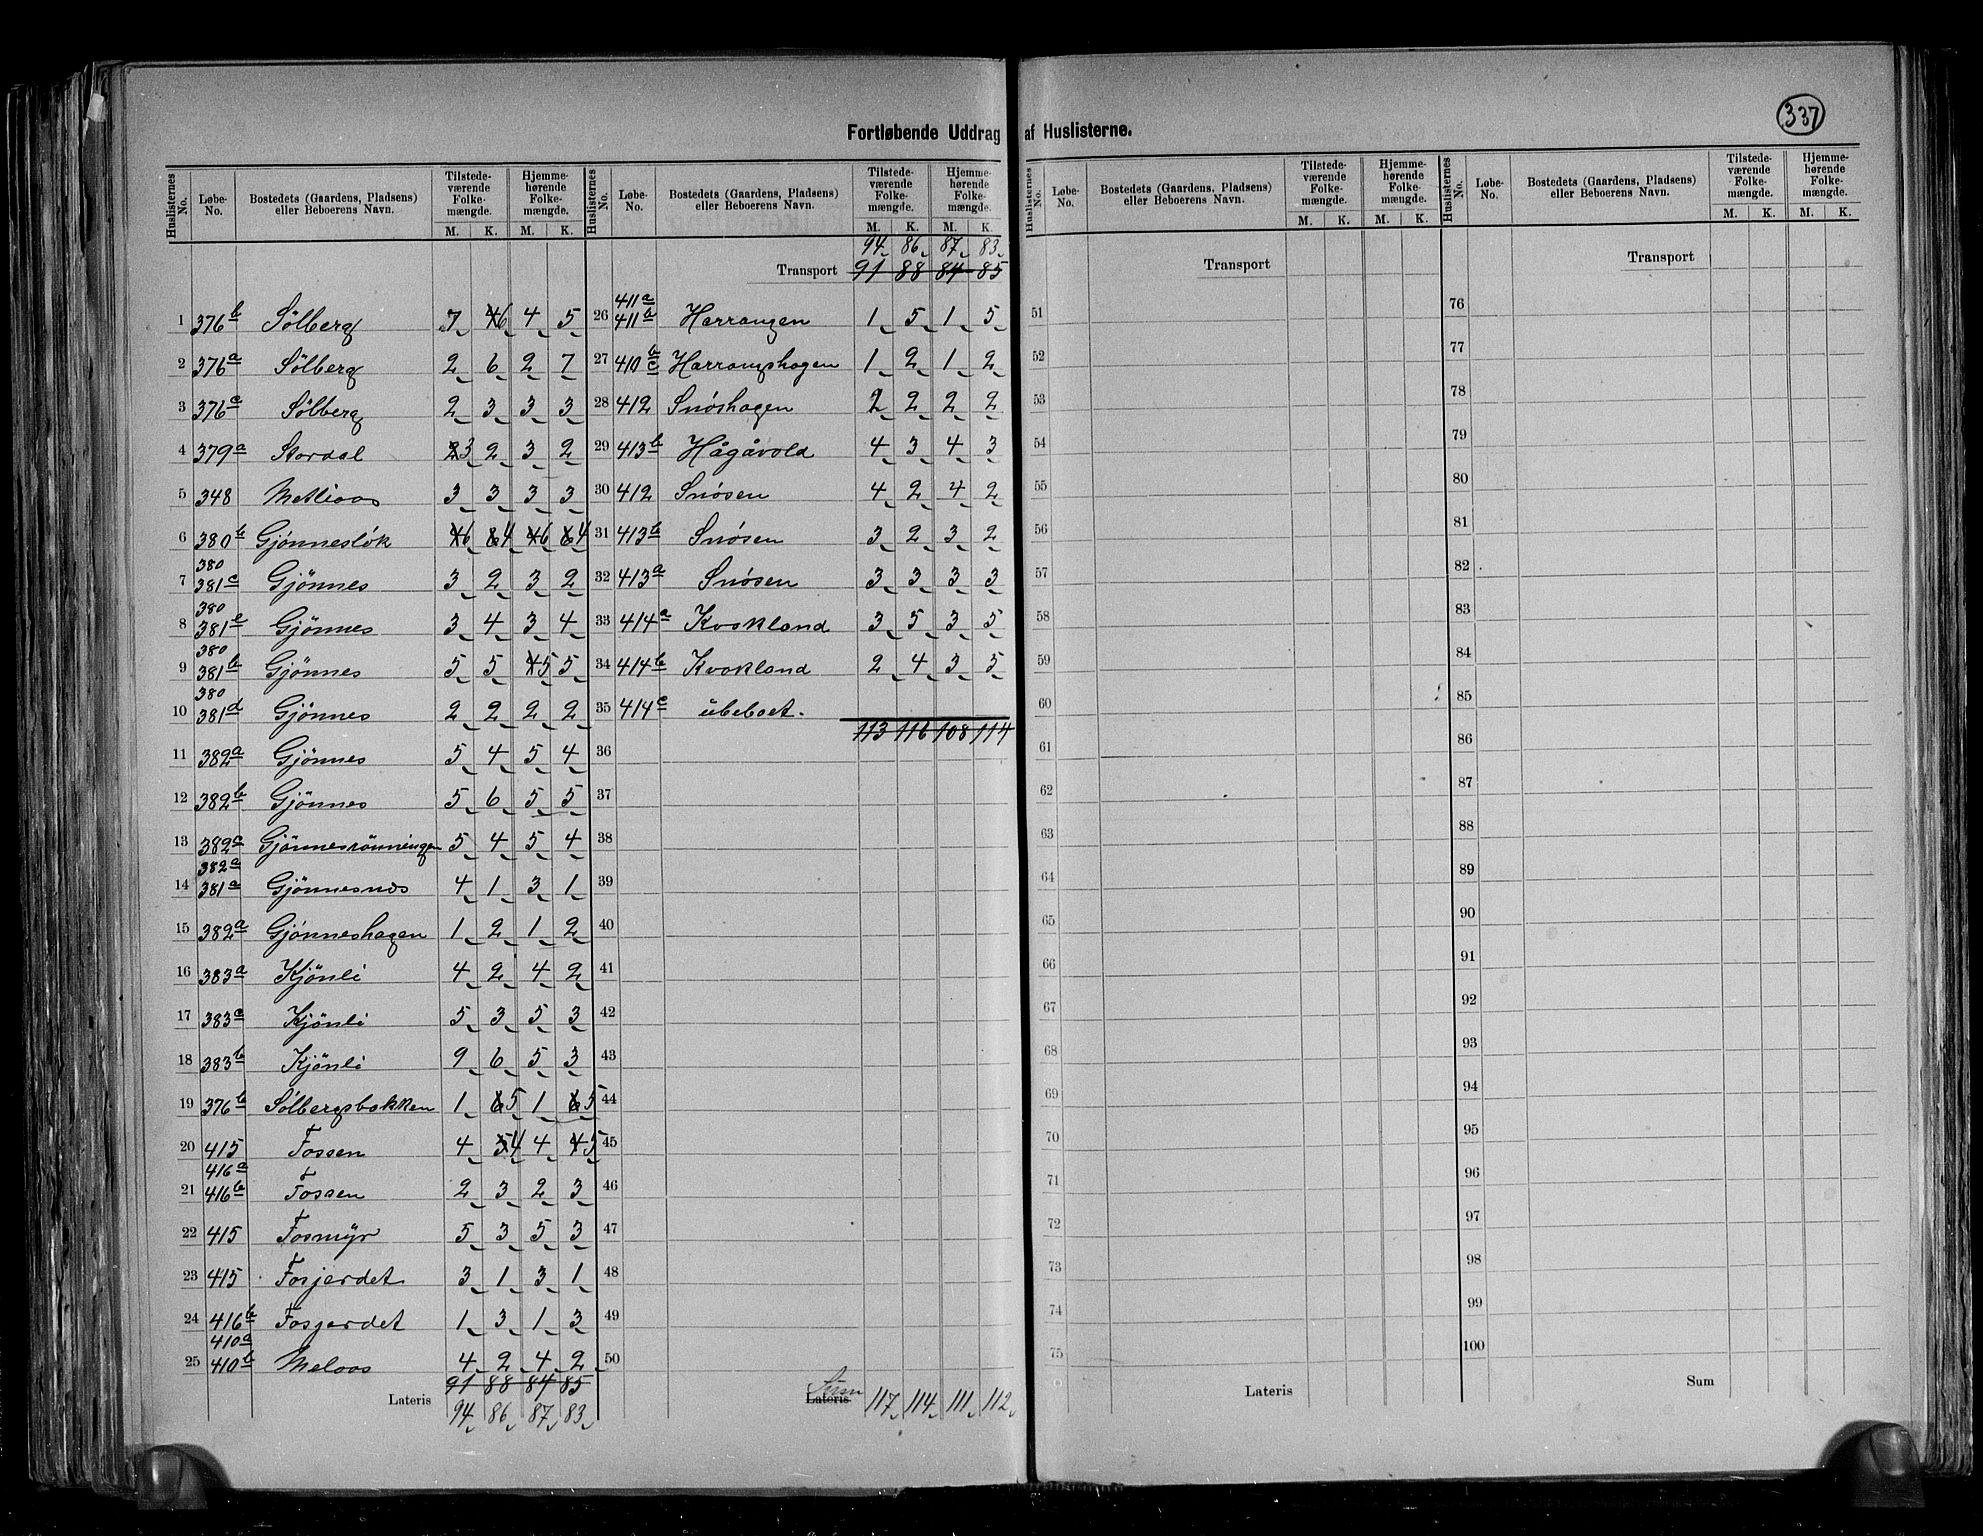 337
Fortløbende Uddrag af Huslisterne.
Huslisternes No. | Løbe-No. | Bostedets (Gaardens, Pladsens) eller Beboerens Navn. | Tilstedeværende Folkemængde. M. K. | Hjemmehørende Folkemængde. M. K.
1 376b Sölberg 7 6 4 5
2 376a Sölberg 2 6 2 7
3 376a Sölberg 2 3 3 3
4 379a Stordal 3 2 3 2
5 348 Metliaas 3 3 3 3
6 380b Gjönneslök 6 4 6 4
7 380 381c Gjönnes 3 2 3 2
8 380 381e Gjönnes 3 4 3 4
9 380 381b Gjönnes 5 5 5 5
10 380 381d Gjönnes 2 2 2 2
11 382a Gjönnes 5 4 5 4
12 382b Gjönnes 5 6 5 5
13 382c Gjönnesrönningen 5 4 5 4
14 382a 381a Gjönnesnæs 4 1 3 1
15 382a Gjönneshagen 1 2 1 2
16 383a Kjönli 4 2 4 2
17 383a Kjönli 5 3 5 3
18 383b Kjönli 9 6 5 3
19 376b Sölbergsbakken 1 5 1 5
20 415 Fossen 4 4 4 5
21 416a 416b Fossen 2 3 2 3
22 415 Fosmyr 5 3 5 3
23 415 Fosjerdet 3 1 3 1
24 416b Fosjerdet 1 3 1 3
25 410a 410b Meloos 4 2 4 2
91 88 84 85
Lateris 94 86 87 83
Huslisternes No. | Løbe-No. | Bostedets (Gaardens, Pladsens) eller Beboerens Navn. | Tilstedeværende Folkemængde. M. K. | Hjemmehørende Folkemængde. M. K.
94 86 87 83
Transport 91 88 84 85
26 411a 411b Harrangen 1 5 1 5
27 410b c Harrangshagen 1 2 1 2
28 412 Snöshagen 2 2 2 2
29 413b Hågåvold 4 3 4 3
30 412 Snösen 4 2 4 2
31 413b Snösen 3 2 3 2
32 413a Snösen 3 3 3 3
33 414a Kvakland 3 5 3 5
34 414b Kvakland 2 4 3 5
35 414c ubeboet.
113 116 108 114
36
37
38
39
40
41
42
43
44
45
46
47
48
49
50
Lateris Sum 117 114 111 112
Huslisternes No. | Løbe-No. | Bostedets (Gaardens, Pladsens) eller Beboerens Navn. | Tilstedeværende Folkemængde. M. K. | Hjemmehørende Folkemængde. M. K.
Transport
51
52
53
54
55
56
57
58
59
60
61
62
63
64
65
66
67
68
69
70
71
72
73
74
75
Lateris
Huslisternes No. | Løbe-No. | Bostedets (Gaardens, Pladsens) eller Beboerens Navn. | Tilstedeværende Folkemængde. M. K. | Hjemmehørende Folkemængde. M. K.
Transport
76
77
78
79
80
81
82
83
84
85
86
87
88
89
90
91
92
93
94
95
96
97
98
99
100
Sum